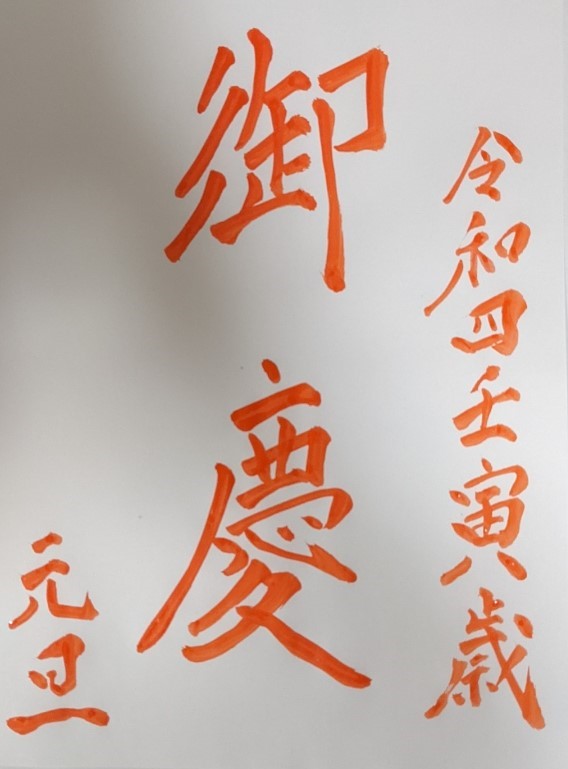 令和四壬寅歳
御慶
元旦